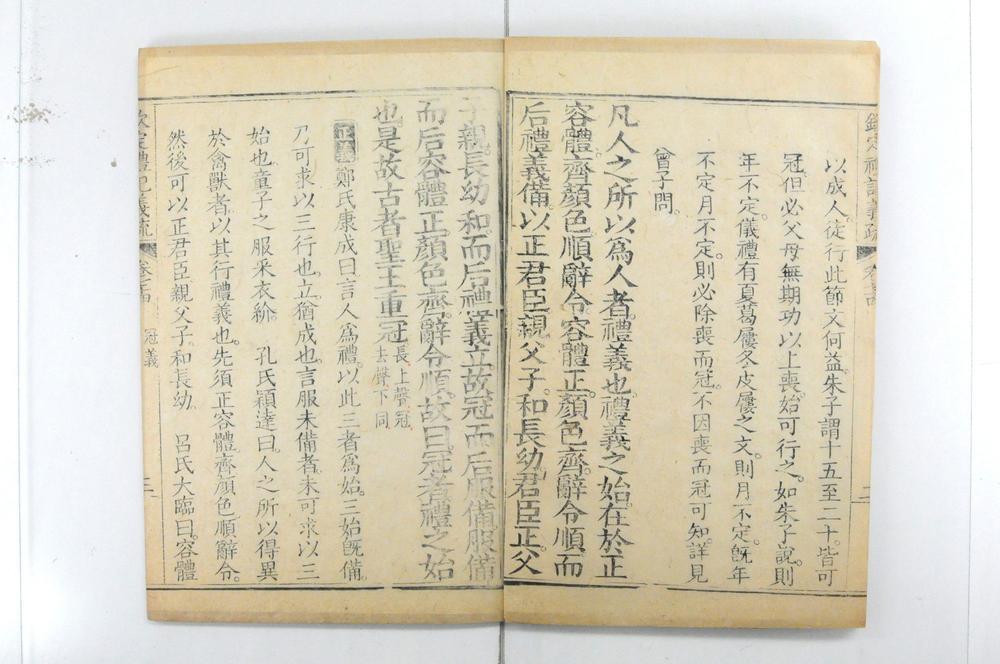 欽定禮記義疏
以成人徒行此節文何益朱子謂十五至二十皆可
冠但必父母無期功以上喪始可行之如朱子說則
年不定儀禮有夏葛屨冬皮屨之文則月不定旣年
不定月不定則必除喪而冠不因喪而冠可知詳見
曾子問
凡人之所以爲人者禮義也禮義之始在於正
容體齊顏色順辭令容體正顏色齊辭令順而
后禮義備以正君臣親父子和長幼君臣正父
子親長幼和而后禮義立故冠而后服備服備
而后容體正顏色齊辭令順故曰冠者禮之始
也是故古者聖王重冠長上聲冠
去聲下同
正義鄭氏康成曰言人爲禮以此三者爲始三始旣備
乃可求以三行也立猶成也言服未備者未可求以三
始也童子之服采衣紒 孔氏穎達曰人之所以得異
於禽獸者以其行禮義也先須正容體齊顏色順辭令
然後可以正君臣親父子和長幼 呂氏大臨曰容體
欽定禮記義疏 冠義 三